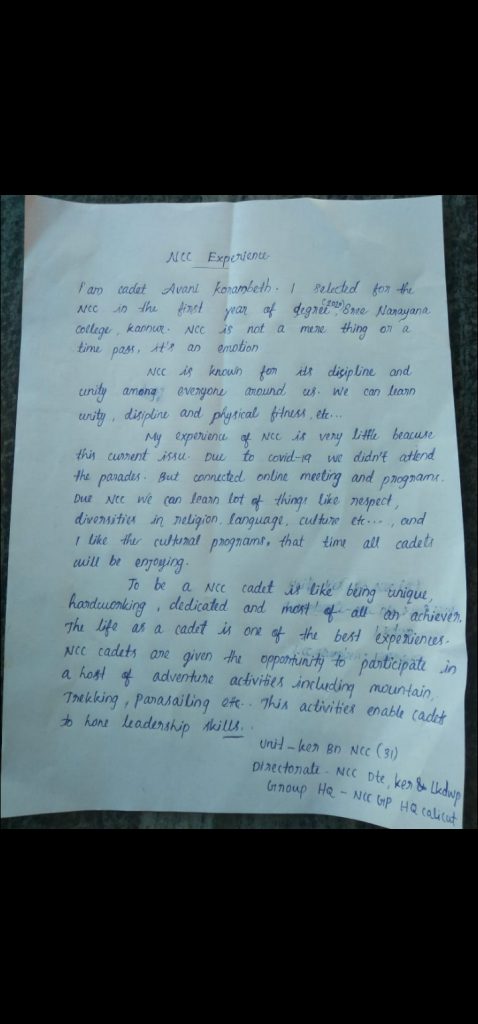 NCC Experience
I am cadet Avani Korambeth. I selected for the
NCC in the first year of degree (2020) Sree Narayana
College, Kannur. NCC is not a mere thing or a
time pass, it's an emotion
NCC is known for its disipline and
unity among everyone around us. We can learn
unity, disipline and physical fitness, etc...
My experience of NCC is very little beacuse
this current issu. Due to covid-19 we didn't attend
the parades. But connected online meeting and programs.
Due NCC we can learn lot of things like respect,
diversities in religion, language, culture etc...., and
I like the cultural programs, that time all cadets
will be enjoying.
To be a NCC cadet is like being unique,
hardworking, dedicated and most of all an achiever.
The life as a cadet is one of the best experiences.
NCC cadets are given the opportunity to participate in
a host of adventure activities including mountain,
Trekking, Parasailing etc.. This activities enable cadets
to hone leadership skills..
Unit - Ker Bn NCC (31)
Directorate - NCC Dte, Ker & Lkdwp
Group HQ - NCC GP HQ Calicut